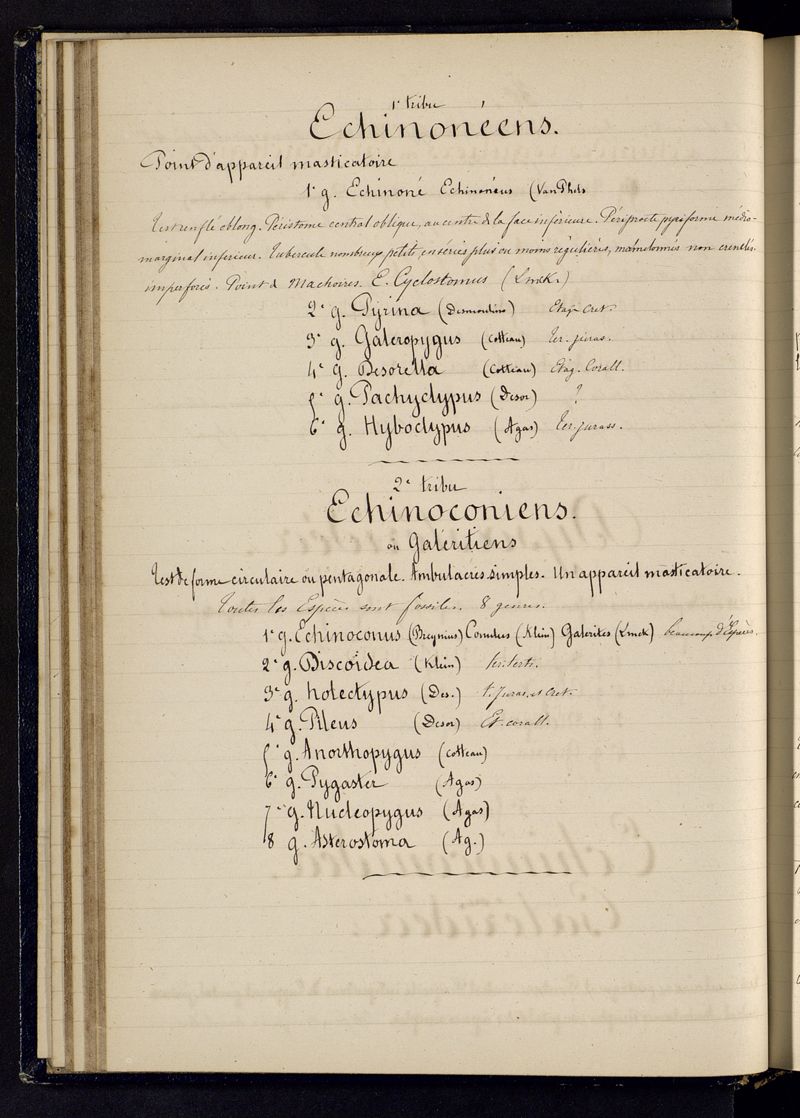 1e tribu
Echinonéens.
Point d'appareil masticatoire
1e g. Echinoné Echinonéus (Van Phels
Test renflé oblong. Péristome central oblique, au centre de la face inférieure. Périprocte pyriforme médio-
marginal inférieur. Tubercule nombreux petits en séries plus ou moins régulières, mamelonnés non crenelés.
imperforés. Point de Machoires. E. Cyclostomus (Lmck.)
2e g. Pyrina (Desmoulins) Etage Cret.
3e g. Galeropygus (Cotteau) Ter. juras.
4e g. Desorella (Cotteau) Etag. Corall.
5e g. Pachyclypus (Desor) ?
6e g. Hyboclypus (Agas) Ter. jurass.
2e tribu
Echinoconiens.
ou Galéritiens
Test de forme circulaire ou pentagonale. Ambulacres simples. Un appareil masticatoire.
Toutes les Espèces sont fossiles. 8 genres.
1e g. Echinoconus (Breynius) Conulus (Klein) Galerites (Lmck) beaucoup d'Espèces.
2e g. Discoïdea (Klein) ter. tert.
3e g. holectypus (Des.) t. juras. et Cret.
4e g. Pileus (Desor) Et. corall.
5e g. Anorthopygus (Cotteau)
6e g. Pygaster (Agas)
7e g. Nucleopygus (Agas)
8 g. Asterostoma (Ag.)